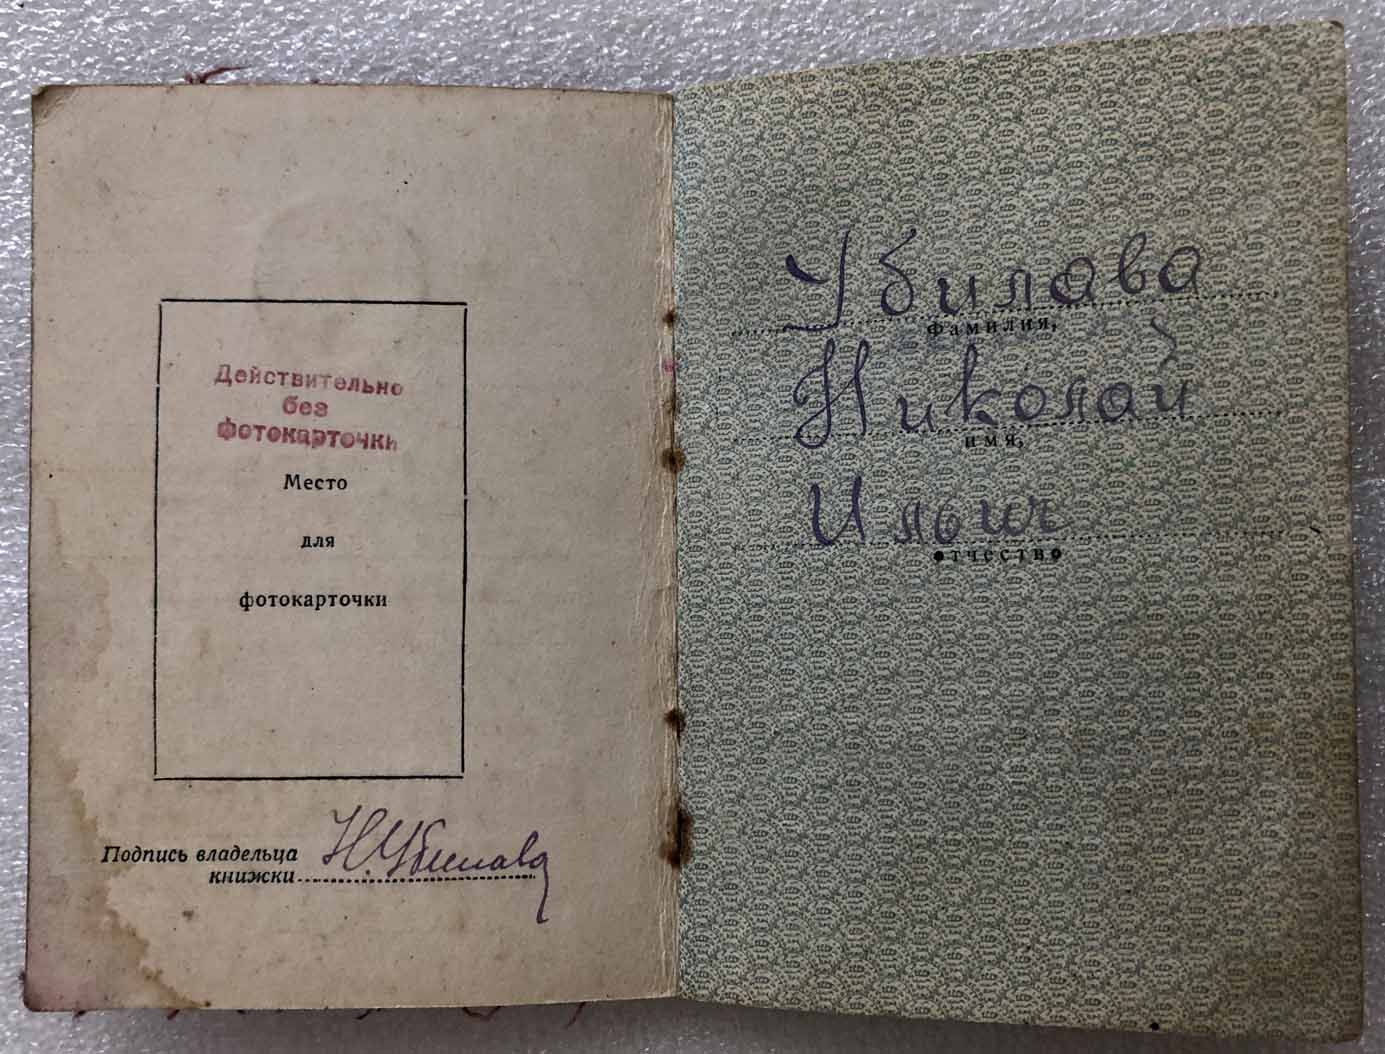 Действительно
без
фотокарточки
Место
для
фотокарточки
Подпись владельца
книжки
Н. Убилава
Убилава
фамилия,
Николай
имя,
Ильич
отчество